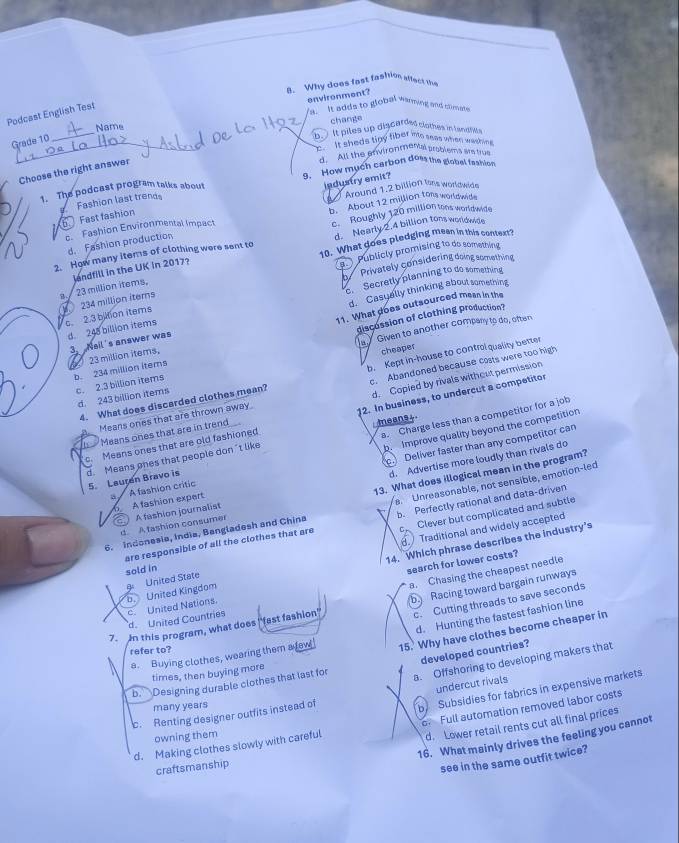 Podcast English Test
Grade 10 A Name
Liz De La Hoz y Astrid De La Hoz
Choose the right answer
1. The podcast program talks about
a. Fashion last trends
b. Fast fashion
c. Fashion Environmental Impact
d. Fashion production
2. How many items of clothing were sent to
landfill in the UK in 2017?
a. 23 million items,
b. 234 million items
c. 2.3 billion items
d. 243 billion items
3. Neil´s answer was
a. 23 million items,
b. 234 million items
c. 2.3 billion items
d. 243 billion items
4. What does discarded clothes mean?
a. Means ones that are thrown away
b. Means ones that are in trend
c. Means ones that are old fashioned
d. Means ones that people don´t like
5. Lauren Bravo is
a. A fashion critic
b. A fashion expert
c. A fashion journalist
d. A fashion consumer
6. Indonesia, India, Bangladesh and China
are responsible of all the clothes that are
sold in
a. United State
b. United Kingdom
c. United Nations.
d. United Countries
7. In this program, what does "fast fashion"
refer to?
a. Buying clothes, wearing them a few
times, then buying more
b. Designing durable clothes that last for
many years
c. Renting designer outfits instead of
owning them
d. Making clothes slowly with careful
craftsmanship
8. Why does fast fashion affect the
environment?
a. It adds to global warming and climate
change
b. It piles up discarded clothes in landfills
c. It sheds tiny fiber into seas when washing
d. All the environmental problems are true
9. How much carbon does the global fashion
industry emit?
a. Around 1.2 billion tons worldwide
b. About 12 million tons worldwide
c. Roughly 120 million tons worldwide
d. Nearly 2.4 billion tons worldwide
10. What does pledging mean in this context?
a. Publicly promising to do something
b. Privately considering doing something
c. Secretly planning to do something
d. Casually thinking about something
11. What does outsourced mean in the
discussion of clothing production?
a. Given to another company to do, often
cheaper
b. Kept in-house to control quality better
c. Abandoned because costs were too high
d. Copied by rivals without permission
12. In business, to undercut a competitor
means:.
a. Charge less than a competitor for a job
b. Improve quality beyond the competition
c. Deliver faster than any competitor can
d. Advertise more loudly than rivals do
13. What does illogical mean in the program?
a. Unreasonable, not sensible, emotion-led
b. Perfectly rational and data-driven
c. Clever but complicated and subtle
d. Traditional and widely accepted
14. Which phrase describes the industry's
search for lower costs?
a. Chasing the cheapest needle
b. Racing toward bargain runways
c. Cutting threads to save seconds
d. Hunting the fastest fashion line
15. Why have clothes become cheaper in
developed countries?
a. Offshoring to developing makers that
undercut rivals
b. Subsidies for fabrics in expensive markets
c. Full automation removed labor costs
d. Lower retail rents cut all final prices
16. What mainly drives the feeling you cannot
see in the same outfit twice?